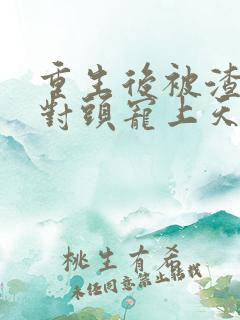 重生後被渣
對頭寵上天
桃生有希
未任同意禁止轉載